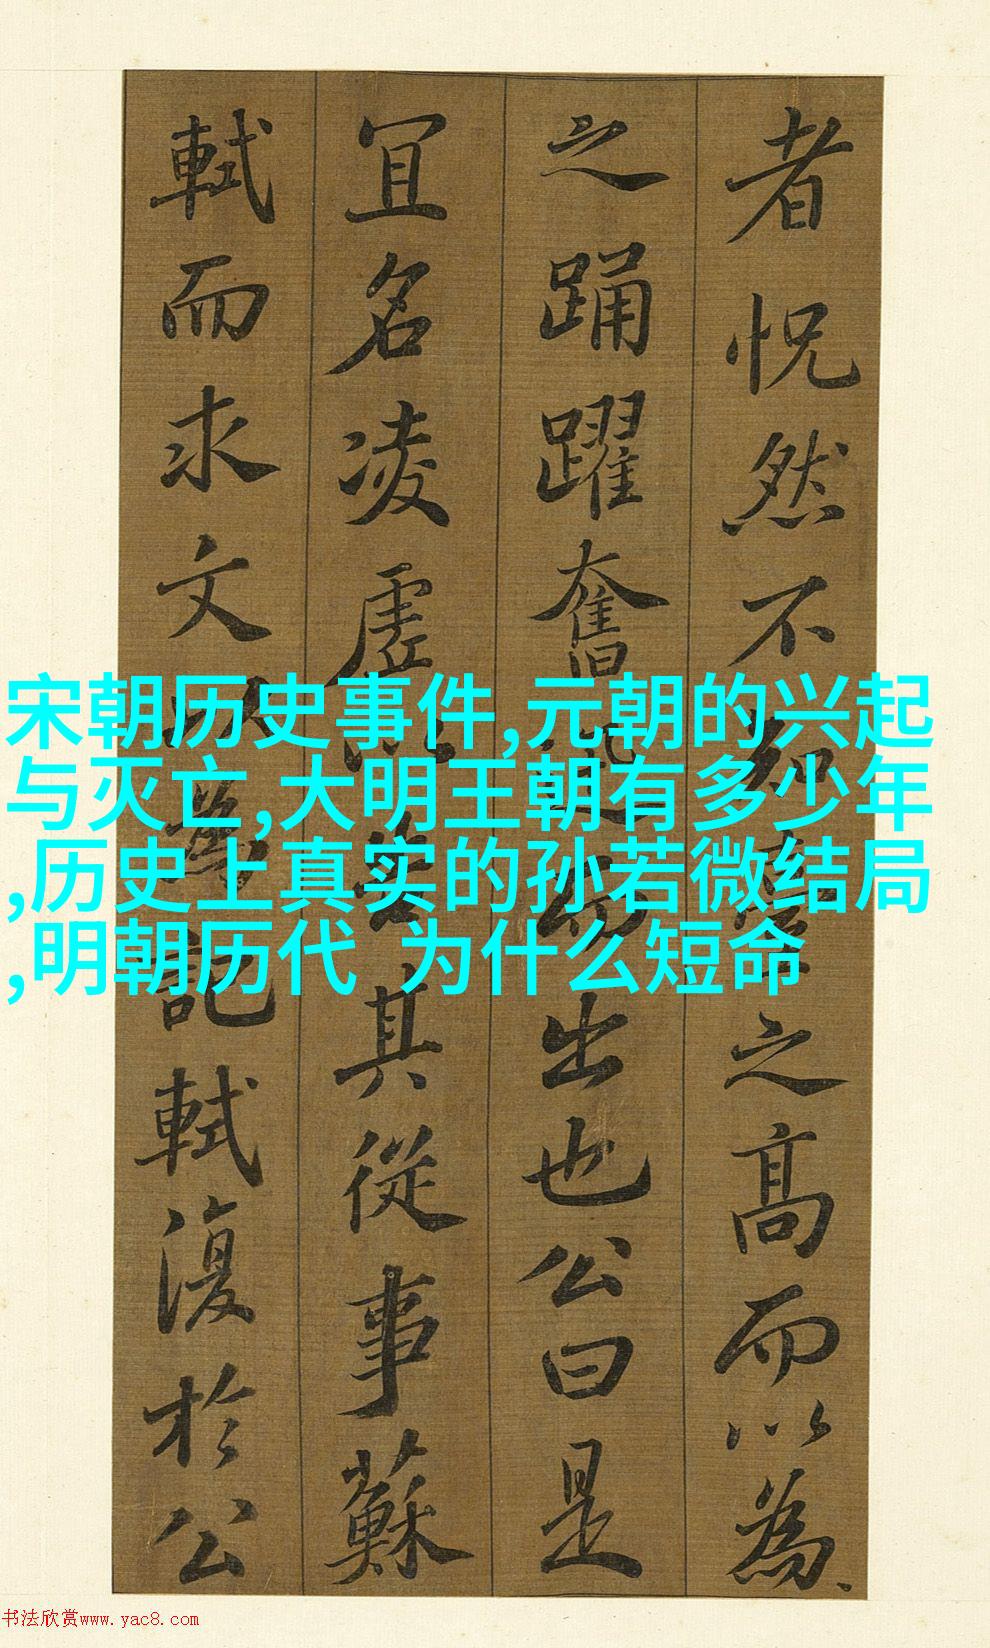 者怳然不知臺之高而以為
之踊躍奮迅出也公曰是
冝名凌虛以告其從事蘇
軾而求文以為記軾復於公
宋朝历史事件,元朝的兴起
与灭亡,大明王朝有多少年
,历史上真实的孙若微结局
,明朝历代 为什么短命
书法欣赏www.yac8.com